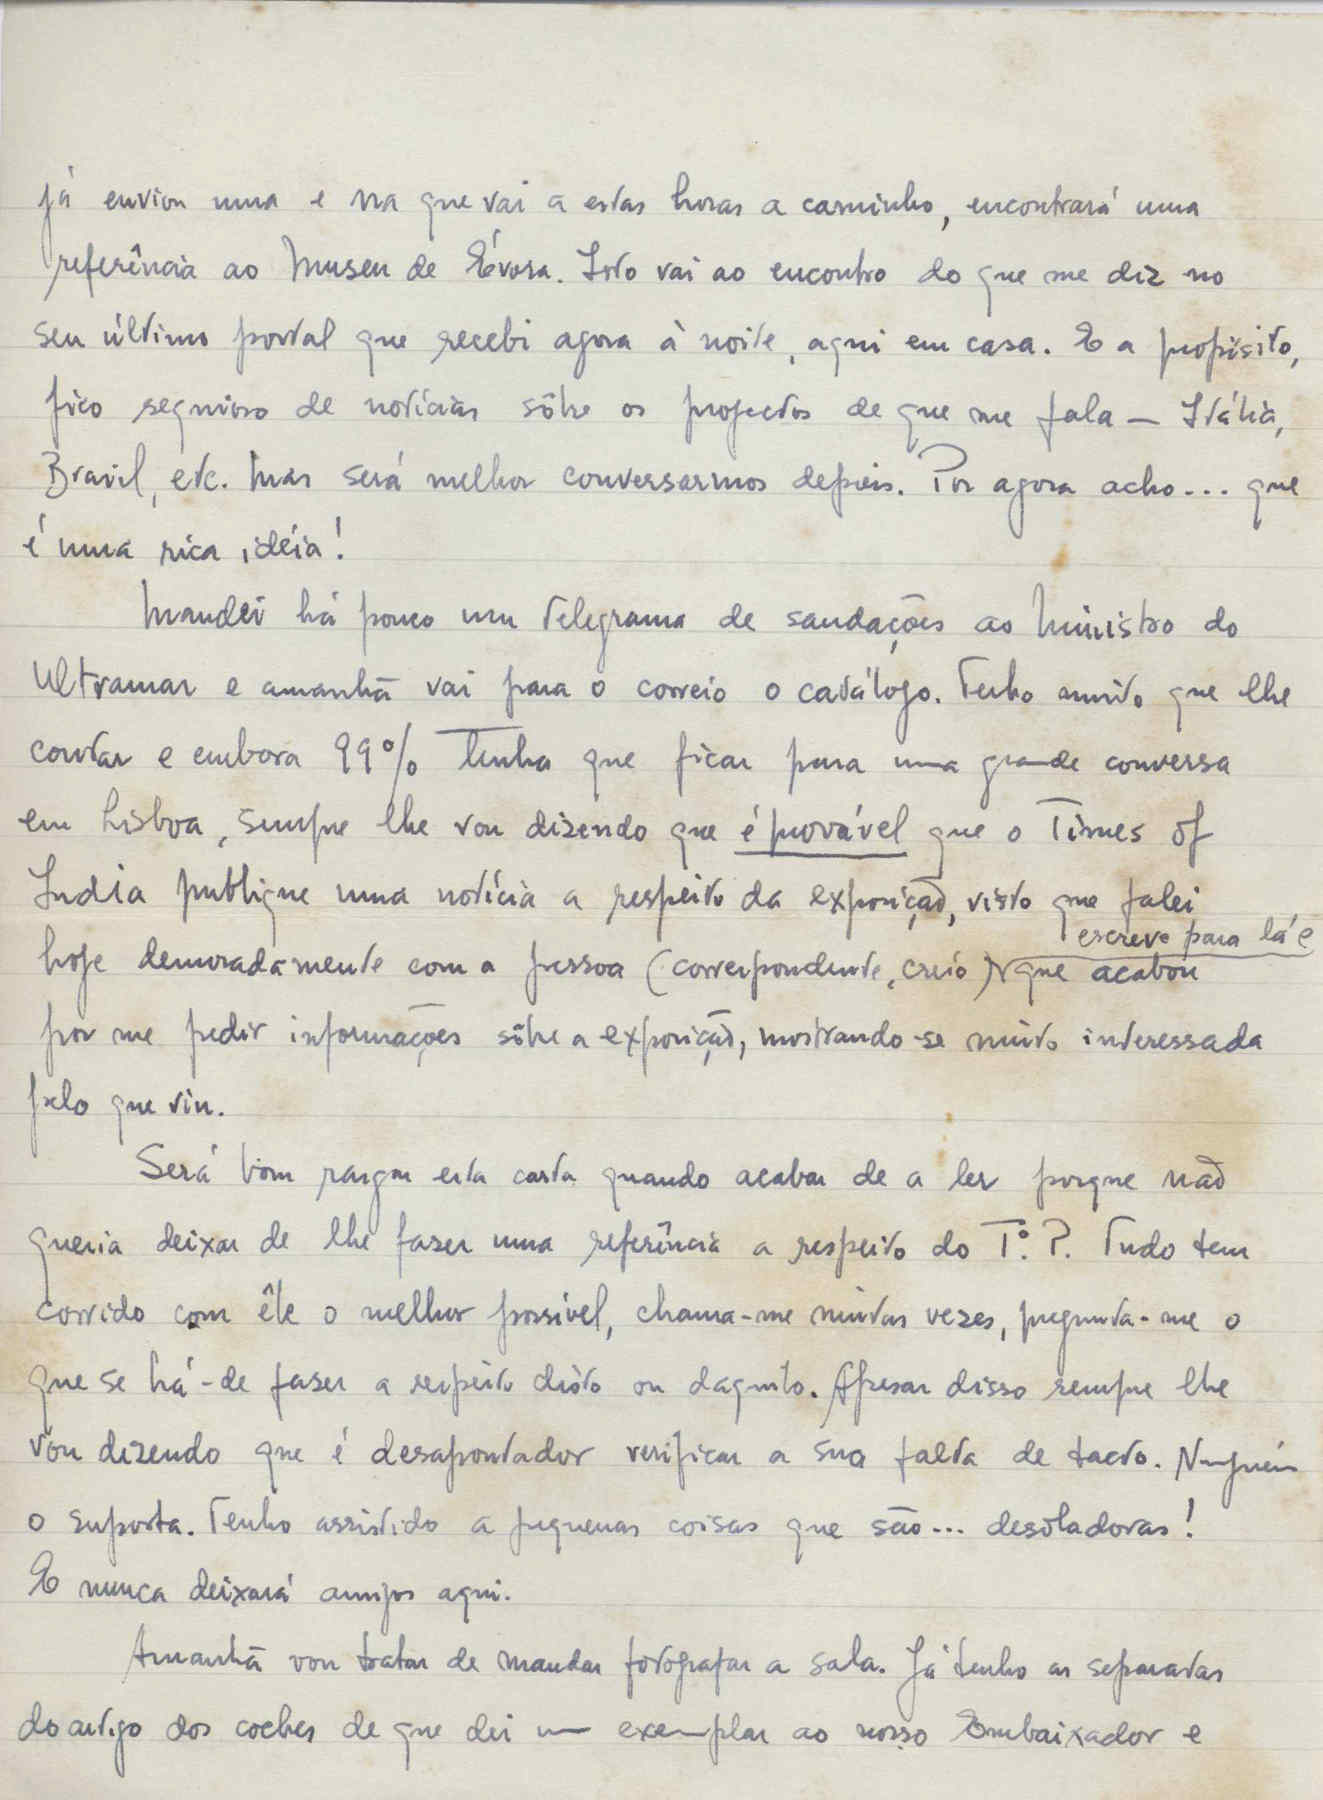 já enviou uma e na que vai a estas horas a caminho, encontrará uma
referência ao Museu de Évora. Isto vai ao encontro do que me diz no
seu último postal que recebi agora à noite, aqui em casa. E a propósito,
fico sequioso de notícias sôbre os projectos de que me fala — Itália,
Brasil, etc. Mas será melhor conversarmos depois. Por agora acho... que
é uma rica idéia!
Mandei há pouco um telegrama de saudações ao Ministro do
Ultramar e amanhã vai para o correio o catálogo. Tenho muito que lhe
contar e embora 99% tenha que ficar para uma grande conversa
em Lisboa, sempre lhe vou dizendo que é provável que o Times of
India publique uma notícia a respeito da exposição, visto que falei
escreve para lá e
hoje demoradamente com a pessoa (correspondente, creio) que acabou
por me pedir informações sôbre a exposição, mostrando-se muito interessada
pelo que viu.
Será bom rasgar esta carta quando acabar de a ler porque não
queria deixar de lhe fazer uma referência a respeito do Tº. P. Tudo tem
corrido com êle o melhor possível, chama-me muitas vezes, pregunta-me o
que se há-de fazer a respeito disto ou daquilo. Apesar disso sempre lhe
vou dizendo que é desapontador verificar a sua falta de tacto. Ninguém
o suporta. Tenho assistido a pequenas coisas que são... desoladoras!
E nunca deixará amigos aqui.
Amanhã vou tratar de mandar fotografar a sala. Já tenho as separatas
do artigo dos coches de que dei um exemplar ao nosso Embaixador e